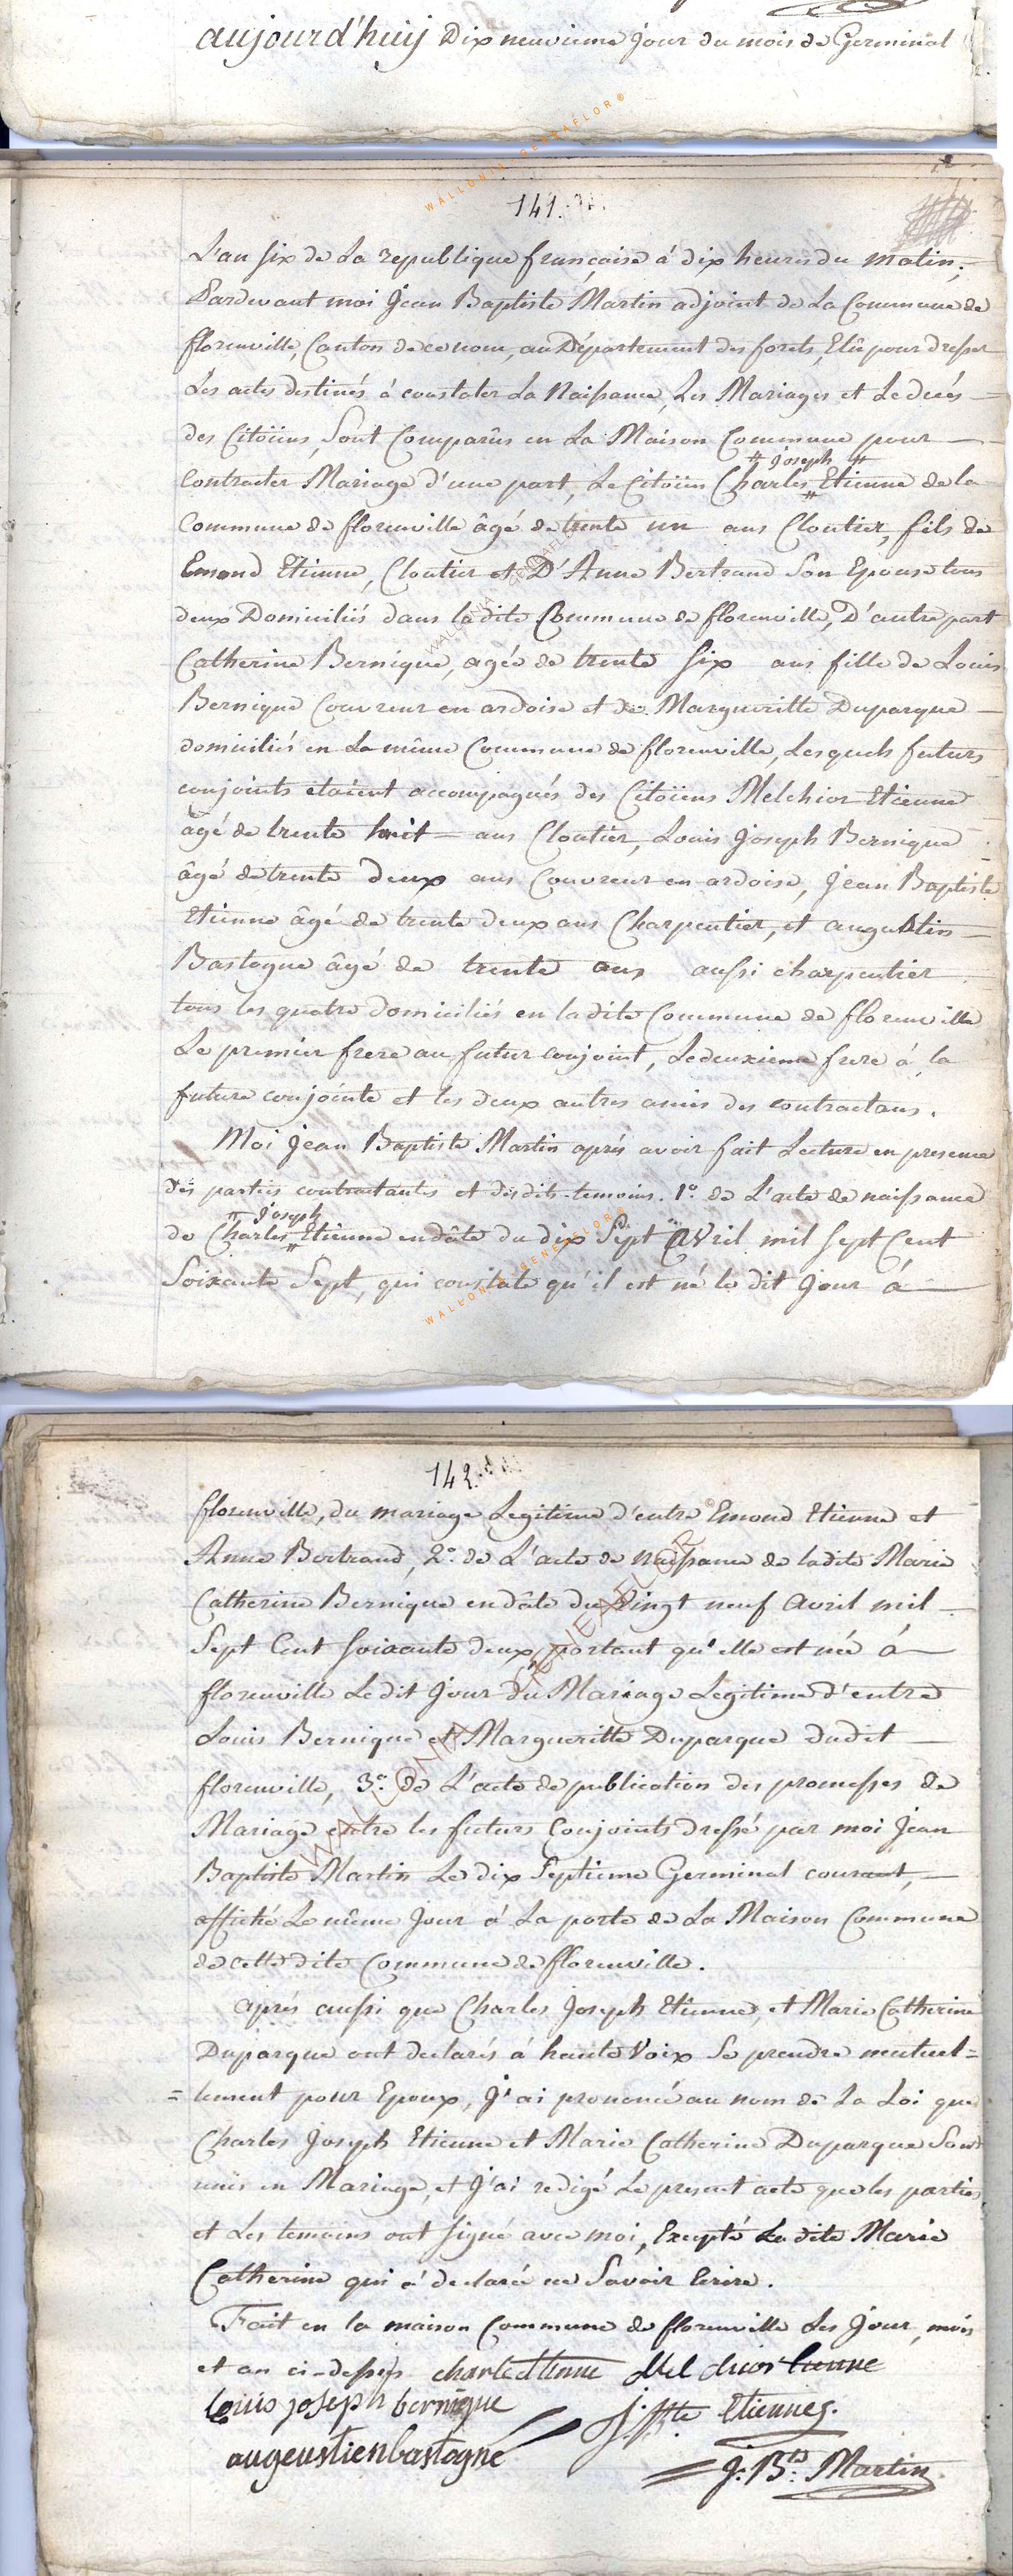 aujourd'huy Dix neuvieme jour du mois de Germinal
WALLONIA - GENEAFLOR ©
141.
L'an six de La republique françoise à dix heures du matin;
Pardevant moi Jean Baptiste Martin adjoint de La Commune de
florenville, Canton de ce nom, au Département des forets, Elû pour dresser
Les actes destinés à constater La Naissance, Les Mariages et Le décés
des Citoïens, Sont Comparûs en La Maison Commune pour
# joseph #
Contracter Mariage d'une part, Le Citoïen Charles # Etienne de la
Commune de florenville âgé de trente un ans Cloutier, fils de
Emond Etienne, Cloutier et D'Anne Bertrand Son Epouse tous
deux Domiciliés dans la dite Commune de florenville, D'autre part
Catherine Bernique, agée de trente six ans fille de Louis
Bernique Couvreur en ardoise et de Margueritte Duparque
domiciliés en La même Commune de florenville, Lesquels futurs
conjoints etaient accompagnés des Citoïens Melchior Etienne
âgé de trente huit ans Cloutier, Louis Joseph Bernique
âgé de trente deux ans Couvreur en ardoise, Jean Baptiste
Etienne âgé de trente deux ans Charpentier, et augustin
Bastogne âgé de trente ans aussi charpentier
tous les quatre domiciliés en la dite Commune de florenville
Le premier frere au futur conjoint, Le deuxieme frere à la
future conjointe et les deux autres amis des contractans.
Moi Jean Baptiste Martin aprés avoir fait Lecture en presence
des parties contractantes et desdits temoins. 1° de L'acte de naissance
# Joseph
de Charles # Etienne en dâte du dix Sept avril mil sept Cent
Soixante Sept, qui constate qu'il est né le dit Jour à
WALLONIA - GENEAFLOR ©
142.
florenville, du mariage Legitime d'entre Emond Etienne et
Anne Bertrand, 2° de L'acte de naissance de ladite Marie
Catherine Bernique en dâte du Vingt neuf avril mil
Sept Cent soixante deux, portant qu'elle est née à
florenville Le dit Jour du Mariage Legitime d'entre
Louis Bernique et Margueritte Duparque dudit
florenville, 3° de L'acte de publication des promesses de
Mariage entre les futurs Conjoints dressé par moi Jean
Baptiste Martin Le dix Septieme Germinal courant,
affiché Le même Jour à La porte de La Maison Commune
de cette dite Commune de florenville.
aprés aussi que Charles Joseph Etienne, et Marie Catherine
Duparque ont declarés à haute Voix Se prendre mutuel=
=lement pour Epoux, J'ai prononcé au nom de La Loi que
Charles Joseph Etienne et Marie Catherine Duparque Sont
unis en Mariage, et J'ai redigé Le present acte que les parties
et Les temoins ont signé avec moi, Excepté La dite Marie
Catherine qui à declaré ne Savoir Ecrire.
Fait en la maison Commune de florenville Les Jour, mois
et an ci-dessus charle etienne Mel chior Etienne
Louis joseph bernique J. Bte Etienne.
augeustien bastogne
J. Bte Martin
WALLONIA - GENEAFLOR ©